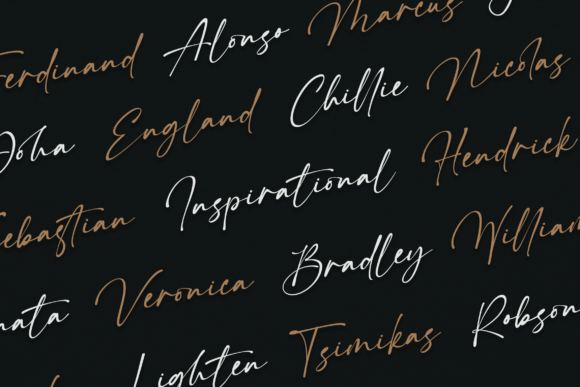 Ferdinand Alonso Marcus
Doha England Chillie Nicolas
Sebastian Inspirational Hendrick
Veronica Bradley William
Lighten Tsimikas Robson